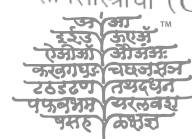 अ आ ™
इईउ ऊए
ऐओऑ औअंअः
कखगघङ चछजझञ
टठडढण तथदधन
पफबभम यरलवश
षसह ळक्षज्ञ